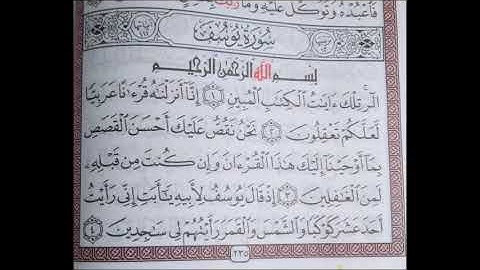 فَاعْبُدْهُ وَتَوَكَّلْ عَلَيْهِ وَمَا رَبُّكَ
سُورَةُ يُوسُفَ
بِسْمِ اللَّهِ الرَّحْمَٰنِ الرَّحِيمِ
الٓر ۚ تِلْكَ ءَايَٰتُ الْكِتَٰبِ الْمُبِينِ ۝١ إِنَّآ أَنزَلْنَٰهُ قُرْءَٰنًا عَرَبِيًّا
لَّعَلَّكُمْ تَعْقِلُونَ ۝٢ نَحْنُ نَقُصُّ عَلَيْكَ أَحْسَنَ الْقَصَصِ
بِمَآ أَوْحَيْنَآ إِلَيْكَ هَٰذَا الْقُرْءَانَ وَإِن كُنتَ مِن قَبْلِهِۦ
لَمِنَ الْغَٰفِلِينَ ۝٣ إِذْ قَالَ يُوسُفُ لِأَبِيهِ يَٰٓأَبَتِ إِنِّي رَأَيْتُ
أَحَدَ عَشَرَ كَوْكَبًا وَالشَّمْسَ وَالْقَمَرَ رَأَيْتُهُمْ لِي سَٰجِدِينَ ۝٤
٢٣٥